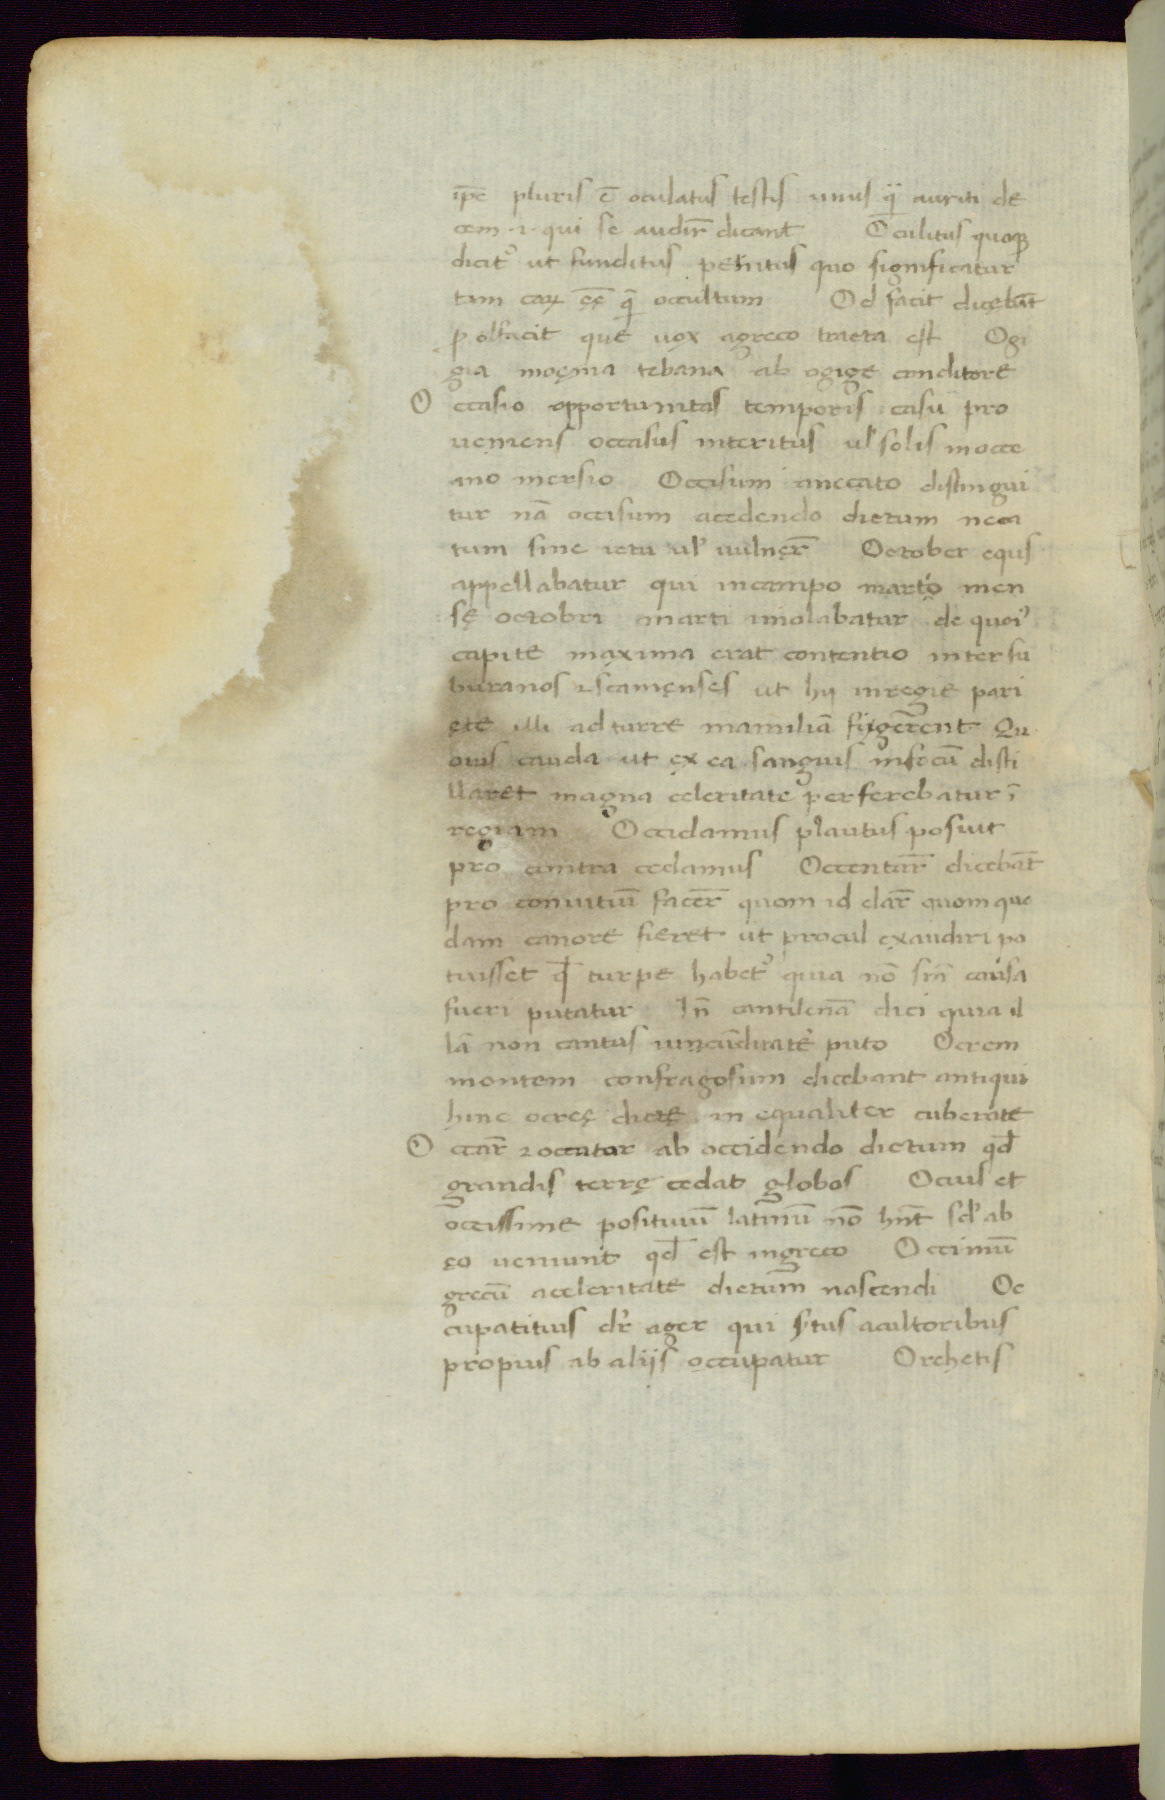 ip̄e pluris ē oculatus testis unus q̄ auriti de
cem ·i· qui se audir̄ dicant Oculitus quoqꝫ
dicit᷒ ut funditus penitus quo significatur
tam caꝝ eę̄ q̄ occultum Od facit dicebāt
ꝑ olfacit que vox agreco tracta est Ogi
gia moȩnia tebana ab ogige conditore
O ccasio opportunitas temporis casū pro
ueniens occasus interitus ul' solis inocce
ano mersio Occisum anecato distingui
tur nā occisum acedendo dictum neca
tum sine ictu ul' uulner̄ October equs
appellabatur qui incampo martio men
sȩ octobri marti imolabatur de quoi᷒
capite maxima erat contentio inter su
buranos ⁊ scamenses ut hij inregie pari
ȩte illi ad turre mamiliā figerent Qu
oius cauda ut ex ea sanguis infocū disti
llaret magna celeritate perferebatur ī
regiam Occidamus plautus posuit
pro contra cedamus Occentar̄ dicebāt
pro conuitiū facer̄ quom id clar̄ quom quo
dam canore fieret ut procul exaudiri po
tuisset qđ turpe habet᷒ quia nō sin̄ causa
fueri putatur In̄ cantilenā dici quia il
lā non cantus iuncūditatē puto Ocrem
montem confragosum dicebant antiqui
hinc ocreȩ dictȩ in equaliter tuberate
O ccar̄ ⁊ occator ab occidendo dictum qđ
grandis terrȩ cedat globos Ocius et
occissime posituum latinum nō hn̄t sꝫ ab
eo ueniunt qđ est ingreco Occimū
grecū aceleritate dictum nascendi Oc
cupatitius dr̄ ager qui s̄tus acultoribus
propius ab alijs occupatur Orchetis